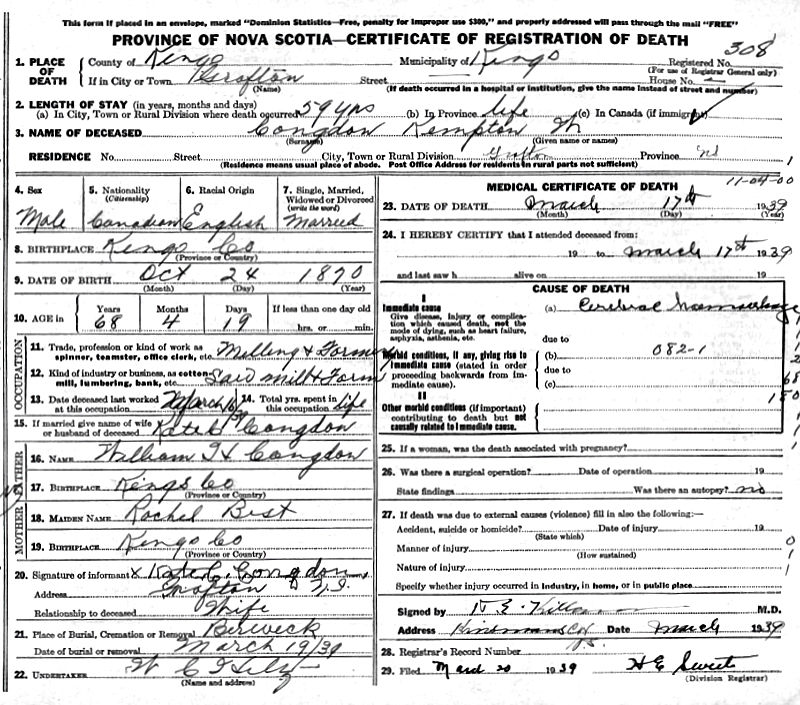 This form if placed in an envelope, marked "Dominion Statistics—Free, penalty for improper use $300," and properly addressed will pass through the mail "FREE"
PROVINCE OF NOVA SCOTIA—CERTIFICATE OF REGISTRATION OF DEATH
308
1. PLACE OF DEATH
County of Kings Municipality of Kings Registered No.
(For use of Registrar General only)
If in City or Town Grafton Street House No.
(Name) (If death occurred in a hospital or institution, give the name instead of street and number)
2. LENGTH OF STAY (in years, months and days)
(a) In City, Town or Rural Division where death occurred 59 yrs (b) In Province life (c) In Canada (if immigrant)
3. NAME OF DECEASED Congdon Kempton W
(Surname) (Given name or names)
RESIDENCE No. Street City, Town or Rural Division Grafton Province NS 1
(Residence means usual place of abode. Post Office Address for residents in rural parts not sufficient)
4. Sex
Male
5. Nationality (Citizenship)
Canadian
6. Racial Origin
English
7. Single, Married, Widowed or Divorced (write the word)
Married
8. BIRTHPLACE Kings Co
(Province or Country)
9. DATE OF BIRTH Oct 24 1870
(Month) (Day) (Year)
10. AGE in Years Months Days If less than one day old
68 4 19 hrs. or min.
OCCUPATION
11. Trade, profession or kind of work as spinner, teamster, office clerk, etc. Milling & Farmer
12. Kind of industry or business, as cotton mill, lumbering, bank, etc. Saw mill & Farm
13. Date deceased last worked at this occupation March
14. Total yrs. spent in this occupation life
15. If married give name of wife or husband of deceased Congdon
FATHER
16. NAME William H Congdon
17. BIRTHPLACE Kings Co
(Province or Country)
MOTHER
18. MAIDEN NAME Rachel Best
19. BIRTHPLACE Kings Co
(Province or Country)
20. Signature of informant x Congdon
Address Grafton N.S.
Relationship to deceased Wife
21. Place of Burial, Cremation or Removal Berwick
Date of burial or removal March 19/39
22. UNDERTAKER W C
(Name and address)
MEDICAL CERTIFICATE OF DEATH 11-04-00
23. DATE OF DEATH March 17th 1939
(Month) (Day) (Year)
24. I HEREBY CERTIFY that I attended deceased from:
19 to March 17th 1939
and last saw h alive on 19
CAUSE OF DEATH
I
Immediate cause (a) Cerebral Haemorrhage
Give disease, injury or complication which caused death, not the mode of dying, such as heart failure, asphyxia, asthenia, etc.
due to
Morbid conditions, if any, giving rise to immediate cause (stated in order proceeding backwards from immediate cause). (b) 082-1
due to
(c)
II
Other morbid conditions (if important) contributing to death but not causally related to immediate cause.
25. If a woman, was the death associated with pregnancy?
26. Was there a surgical operation? Date of operation 19
State findings Was there an autopsy? no
27. If death was due to external causes (violence) fill in also the following:—
Accident, suicide or homicide? Date of injury 19
(State which)
Manner of injury 0
(How sustained) 1
Nature of injury 1
Specify whether injury occurred in industry, in home, or in public place
Signed by M.D.
Address Date March 1939
28. Registrar's Record Number
29. Filed March 20 1939 H E Sweet
(Division Registrar)